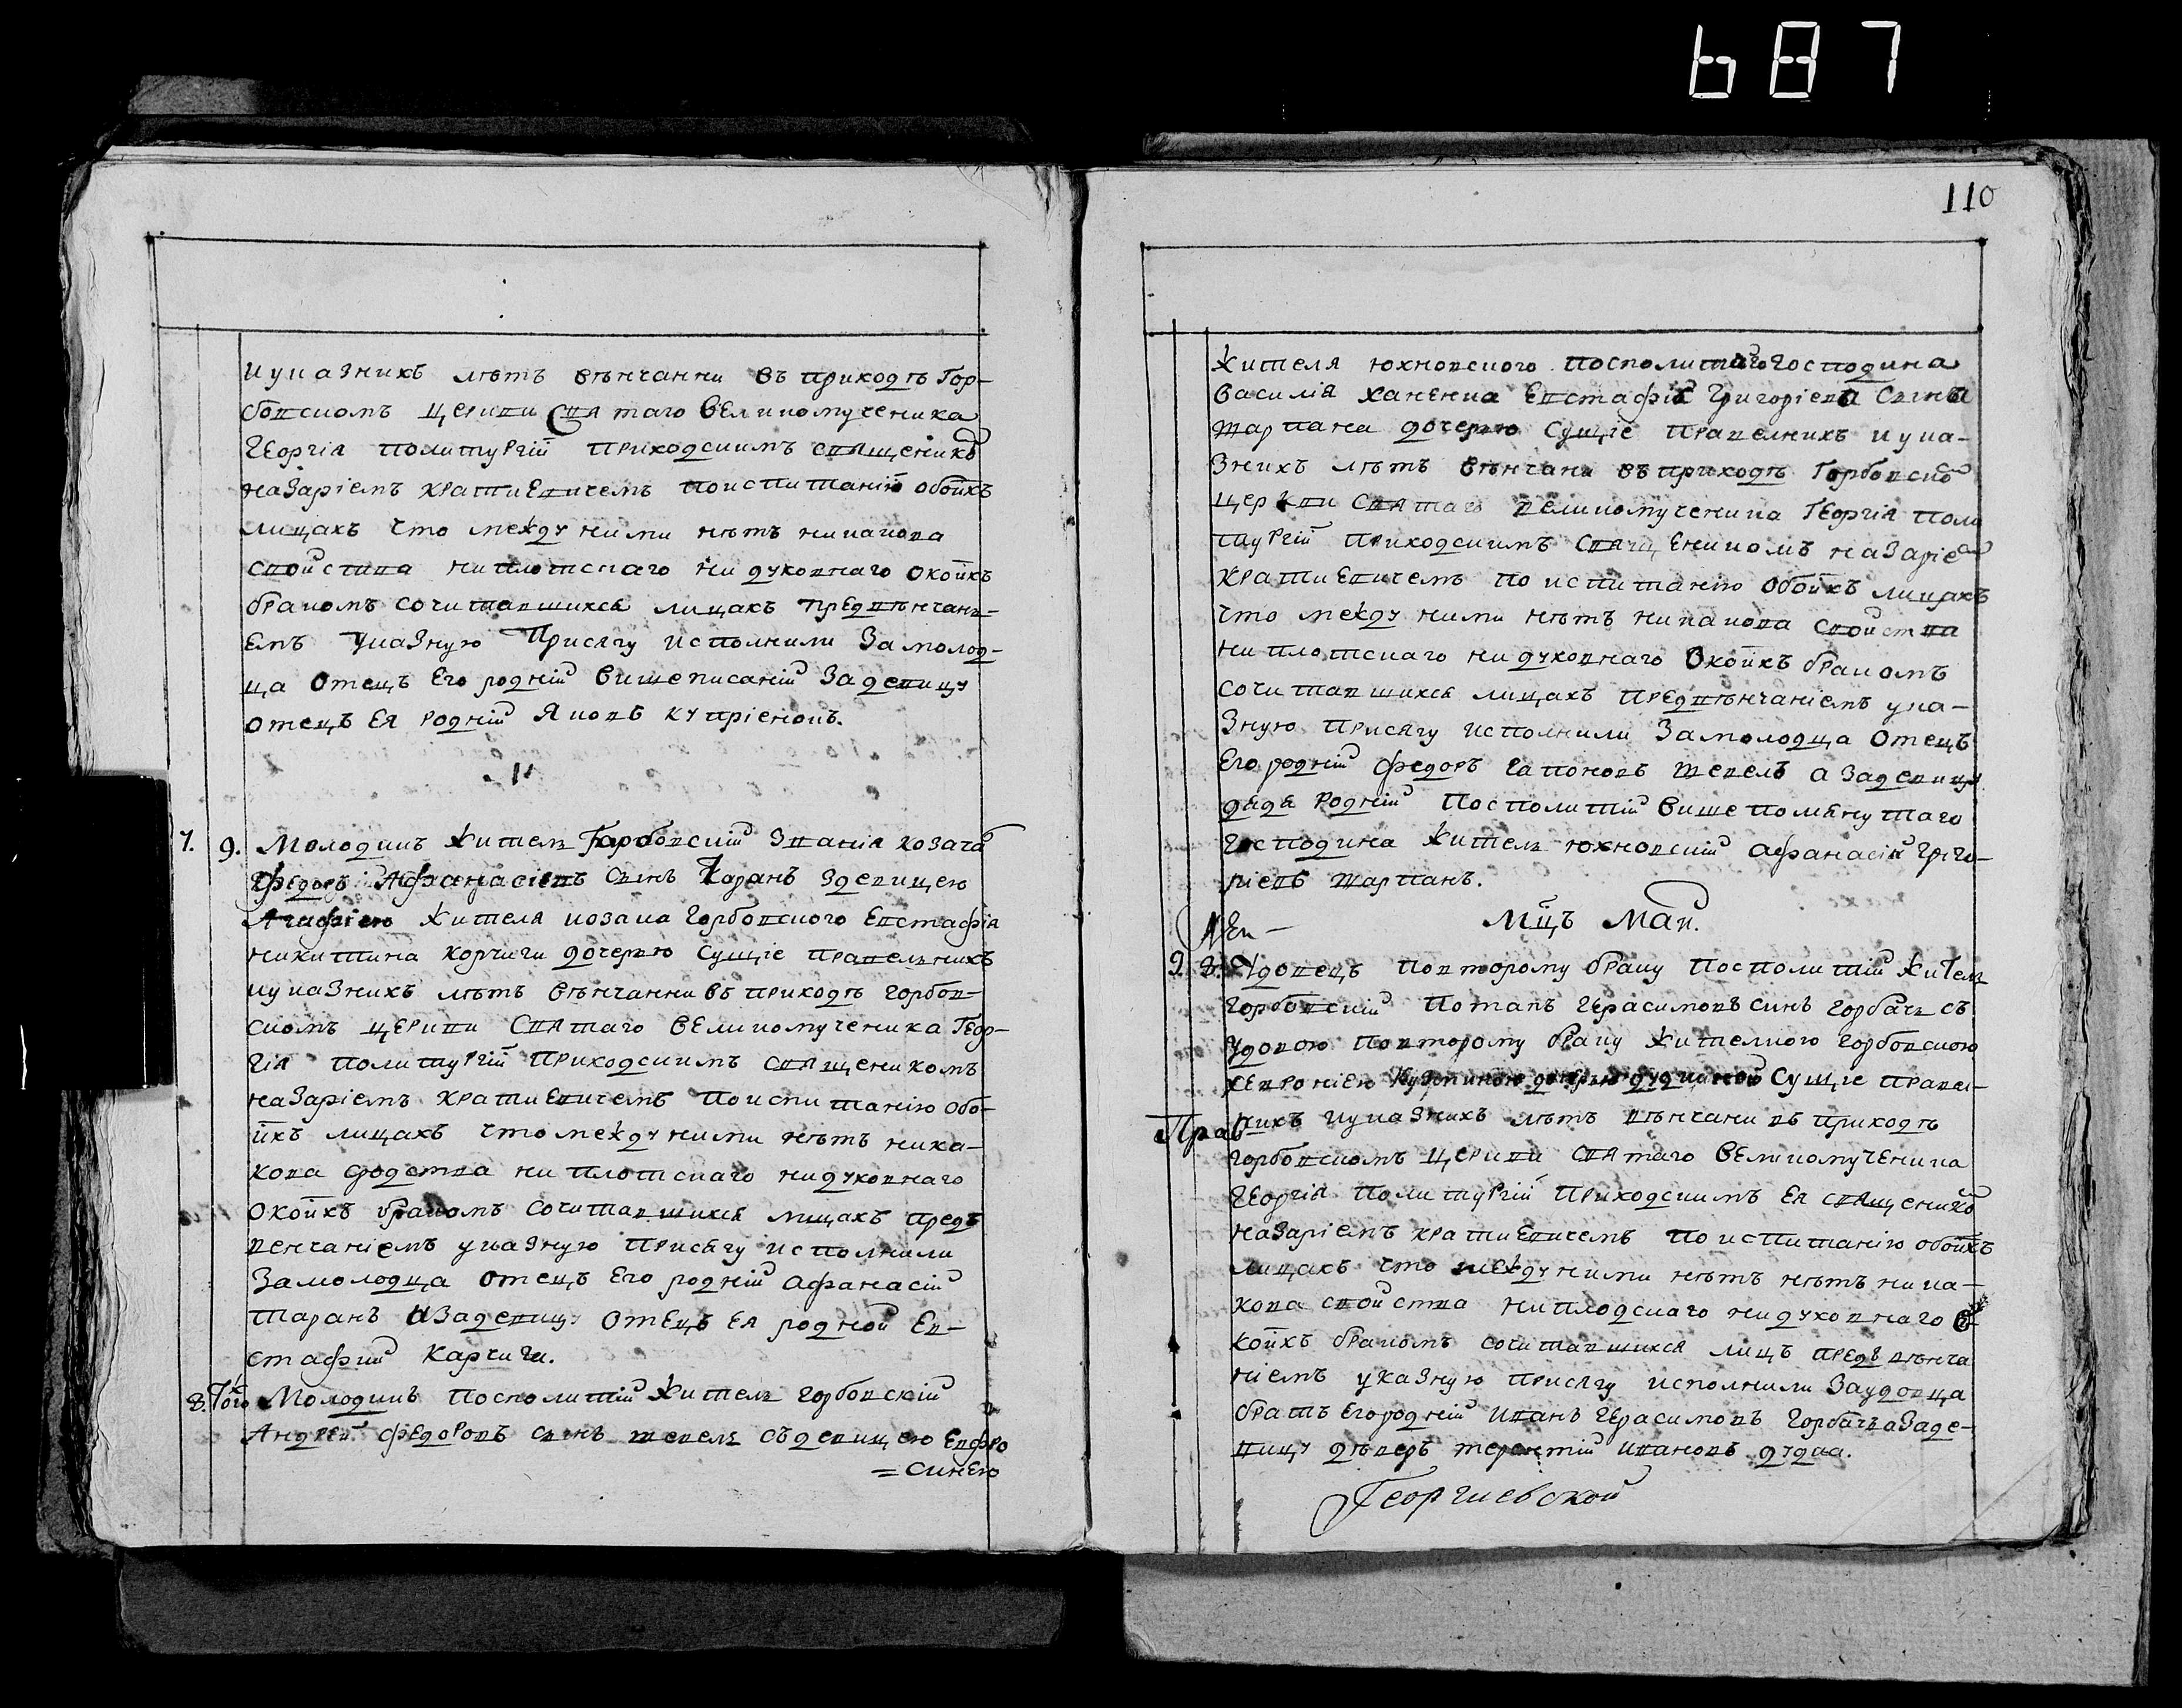 687
110
иуказнихъ лѣтъ вѣнчанни въ приходѣ Гор-
бовскомъ церкви святаго великомученика
Георгія политургіи приходскимъ священико
назаріемъ хратиевичемъ поиспитанію обоихъ
лицахъ что между ними нѣтъ никакова
свойства ниплотскаго ни духовнаго окоихъ
бракомъ сочитавшихся лицахъ предвѣнчан-
емъ указную Присягу исполнили За молод-
ца отецъ Его родній вишеписаній За девицу
отецъ Ея родній Яковъ купріеновъ.
7. 9. Молодикъ жителъ Горбовскій Званія козачо
Федоръ Афанасіевъ синъ Таранъ Здевицею
Агафіею жителя козака Горбовского Евстафія
никитина корчиги дочерю сущіе правелнихъ
иуказнихъ лѣтъ вѣнчанни въ приходѣ горбов-
скомъ церкви Святаго великомученика Геор-
гія политургіи приходскимъ священикомъ
назаріемъ хратиевичемъ поиспитанію обо-
ихъ лицахъ что между ними нѣтъ ника-
кова сродства ни плотскаго нидуховнаго
окоихъ бракомъ сочитавшихся лицахъ предъ
венчаніемъ указную присягу исполнили
Замолодца отецъ Его родній афанасій
таранъ аЗадевицу отецъ Ея родной Ев-
стафий Карчиги.
8. Того Молодикъ посполитій жителъ горбовскій
Андрей федоровъ синъ тевелъ съдевицею Евфро
=синею
жителя юхновского посполитаго господина
василія ханенка Евстафія Григоріева Сина
тарпана дочерю сущіе правелнихъ иука-
знихъ лѣтъ вѣнчани въ приходѣ Горбовско
церкви святаго великомученика Георгія поли
тургіи приходскимъ священикомъ назаріе
хратиевичемъ по испитанію обоихъ лицахъ
что между ними нѣтъ никакова свойства
ниплотскаго нидуховнаго окоихъ бракомъ
сочитавшихся лицахъ предвѣнчаніемъ ука-
зную присягу исполнили Замолодца отецъ
Его родній федоръ гапоновъ тевелъ а Задевицу
дядя родній посполитій више помянутаго
господина жителъ юхновскій афанасій григо-
ріевъ тарпанъ.
Мцъ Маи.
9. Удовецъ повторому браку посполитій жителъ
горбовскій потапъ герасимовъ синъ горбачъ съ
удовою повторому браку жителкою горбовскою
хевроніею дочерю сущіе правел-
Прав
нихъ иуказнихъ лѣтъ вѣнчани въ приходѣ
горбовскомъ церкви святаго великомученика
георгія политургіи приходскимъ Ея священико
назаріемъ хратиевичемъ по испитанію обоихъ
лицахъ что между ними нѣтъ нѣтъ ника-
кова свойства ниплодскаго нидуховнаго о
коихъ бракомъ сочитавшихся лицъ предъ вѣнча
ніемъ указную присягу исполнили Заудовца
братъ Егородній иванъ герасимовъ горбачъ аЗаде-
вицу дѣверъ терентій ивановъ дудка.
Георгиевской